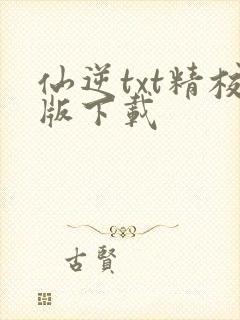 仙逆txt精校
版下载
古賢